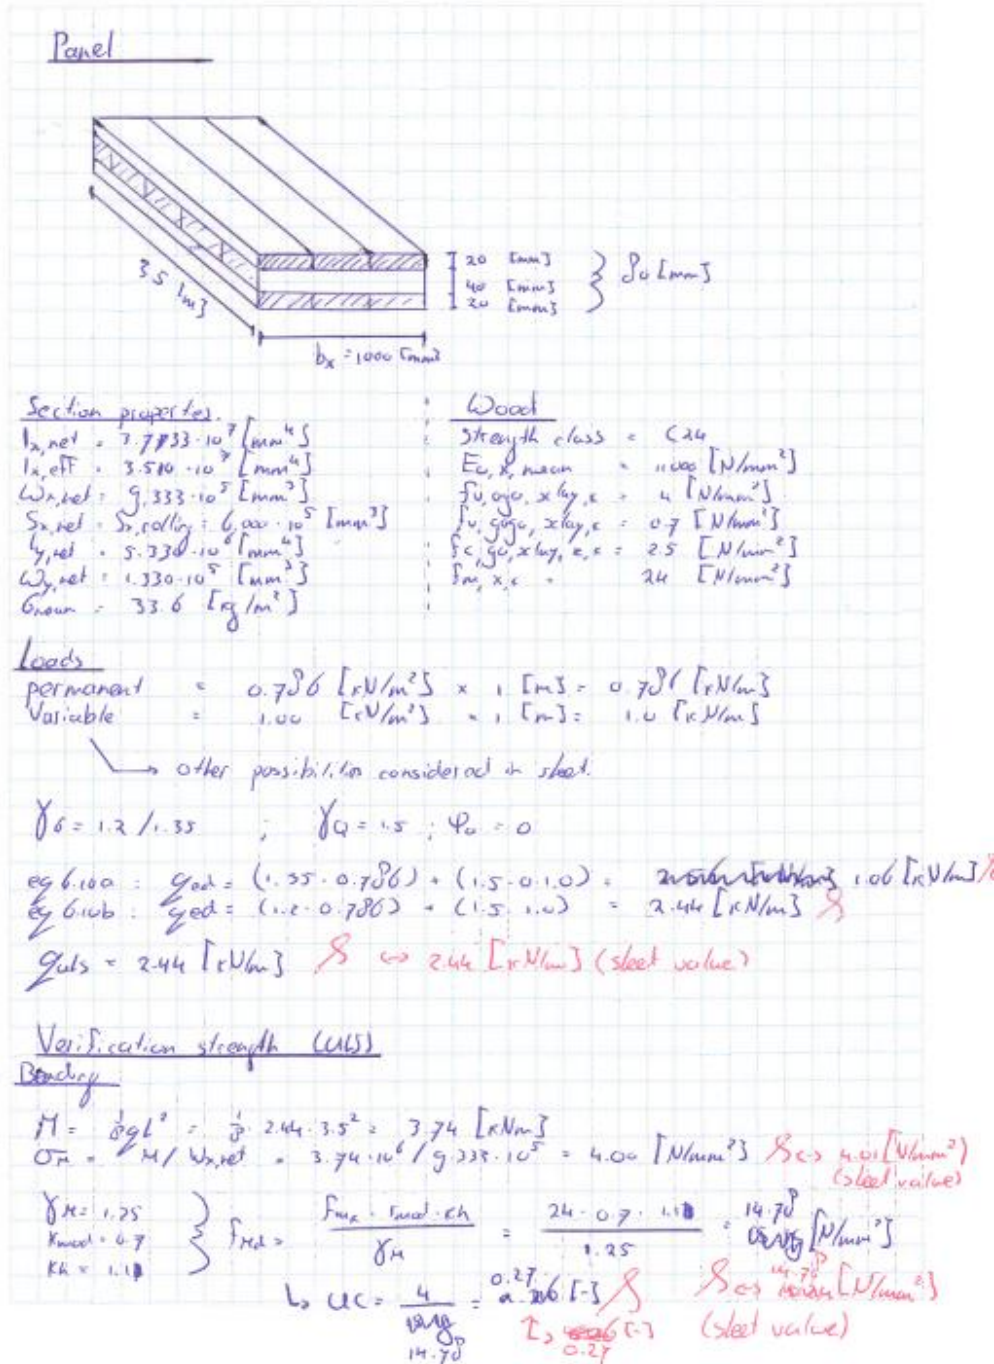 Panel
20 [mm]
40 [mm]
20 [mm]
80 [mm]
3.5 [m]
bx = 1000 [mm]
Section properties
Ix,net = 3.7333·10⁷ [mm⁴]
Ix,eff = 3.510·10⁷ [mm⁴]
Wx,net = 9.333·10⁵ [mm³]
Sx,net = Sx,rolling = 6,000·10⁵ [mm³]
Iy,net = 5.330·10⁶ [mm⁴]
Wy,net = 1.330·10⁵ [mm³]
= 33.6 [kg/m²]
Wood
strength class = C24
E0,x,mean = 11000 [N/mm²]
fv,090,xlay,k = 4 [N/mm²]
fv,9090,xlay,k = 0.7 [N/mm²]
fc,90,xlay,k,k = 2.5 [N/mm²]
fm,x,k = 24 [N/mm²]
Loads
permanent = 0.786 [kN/m²] × 1 [m] = 0.786 [kN/m]
Variable = 1.00 [kN/m²] × 1 [m] = 1.0 [kN/m]
→ other possibilities considered in sheet.
γG = 1.2 / 1.35 ; γQ = 1.5 ; ψ0 = 0
eq 6.10a : qed = (1.35·0.786) + (1.5·0·1.0) = 1.06 [kN/m]
eq 6.10b : qed = (1.2·0.786) + (1.5·1.0) = 2.44 [kN/m]
quls = 2.44 [kN/m] ↔ 2.44 [kN/m] (sheet value)
Verification strength (ULS)
Bending
M = 1/8 q l² = 1/8 · 2.44 · 3.5² = 3.74 [kNm]
σM = M / Wx,net = 3.74·10⁶ / 9.333·10⁵ = 4.00 [N/mm²] ↔ 4.01 [N/mm²]
(sheet value)
γM = 1.25
kmod = 0.7
kh = 1.1
fMd = fmk · kmod · kh / γM = 24 · 0.7 · 1.1 / 1.25 = 14.78 [N/mm²]
↔ 14.78 [N/mm²]
(sheet value)
↳ UC = 4 / 14.78 = 0.27 [-]
↳ 0.27 [-]